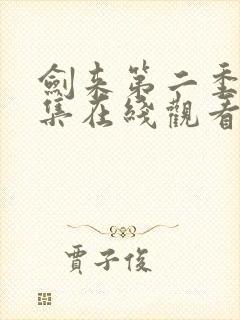 劍来第二季
集在綫觀看
賈子俊